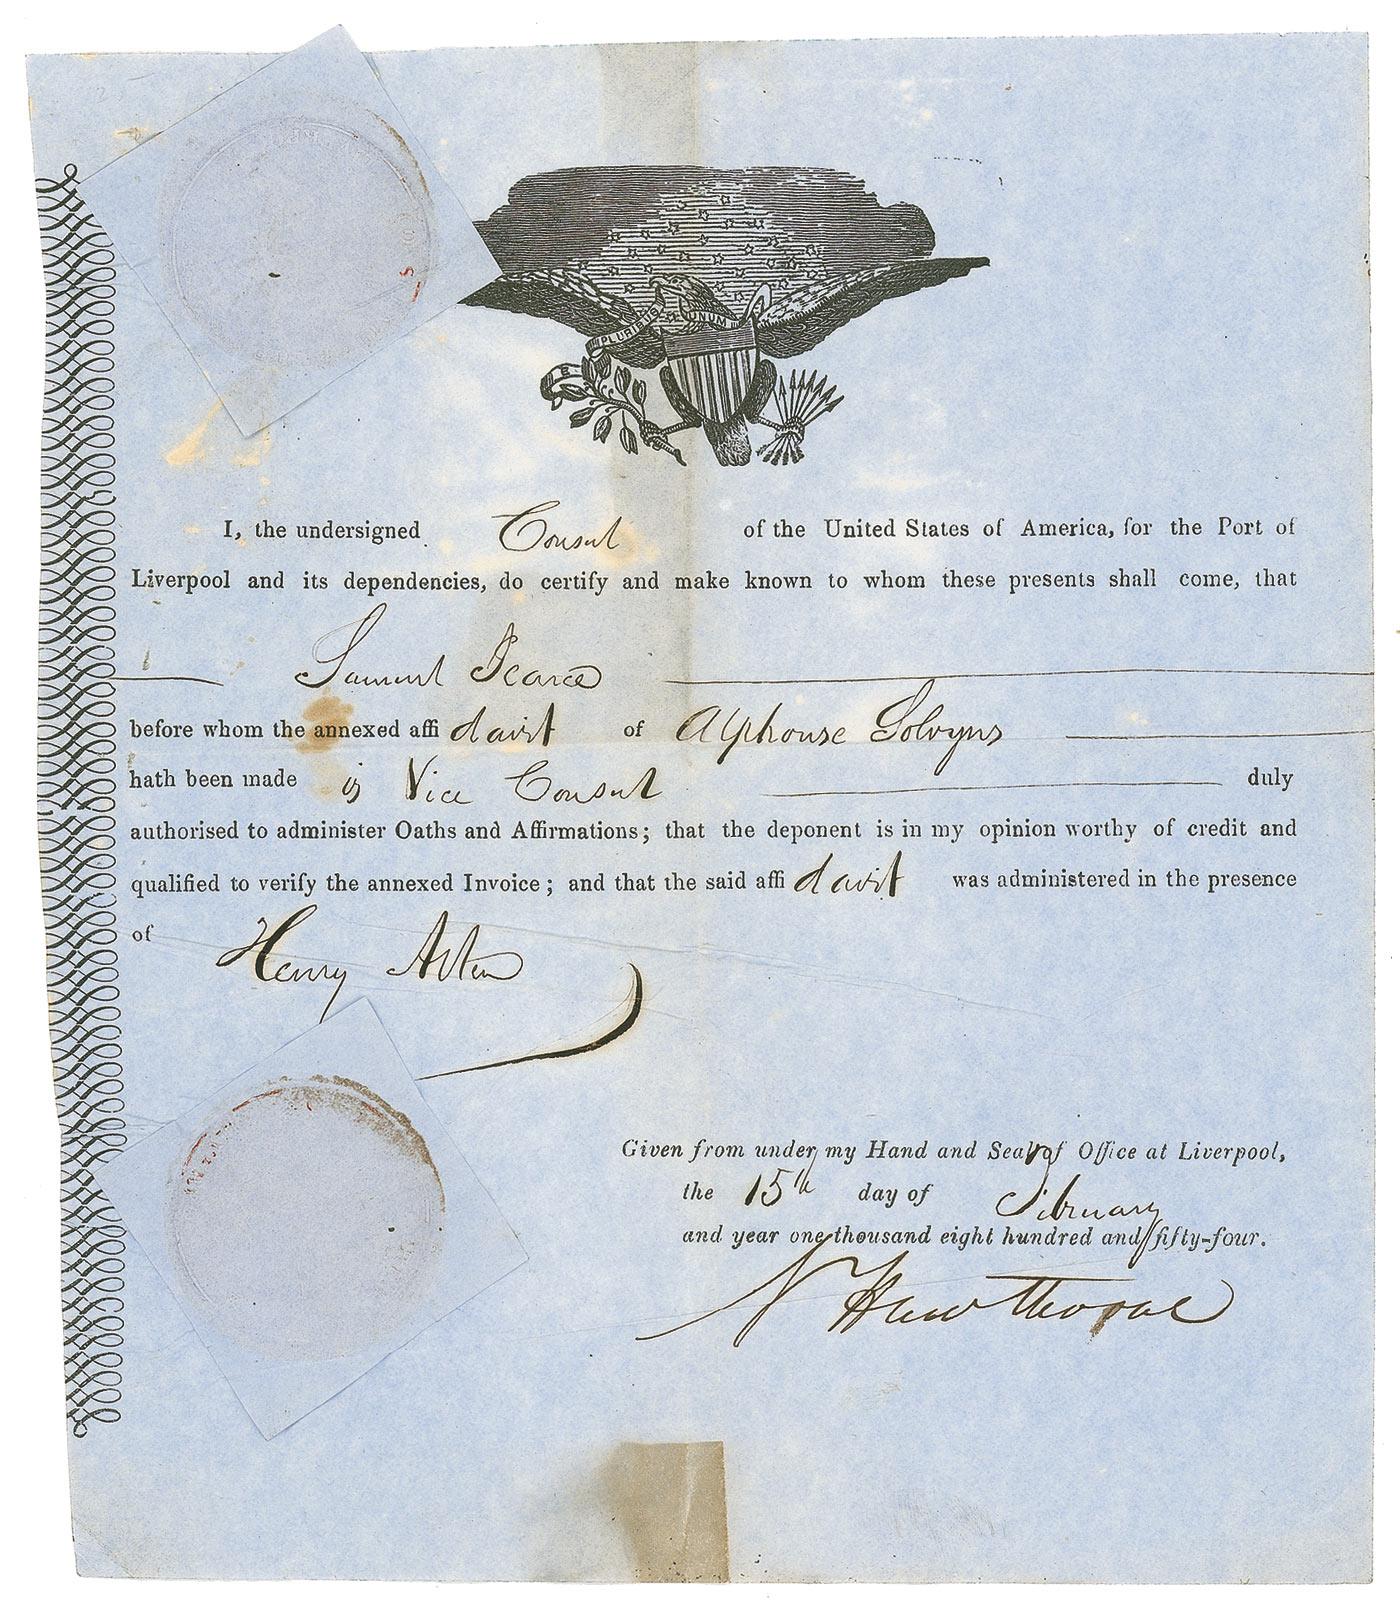 E PLURIBUS UNUM
I, the undersigned Consul of the United States of America, for the Port of
Liverpool and its dependencies, do certify and make known to whom these presents shall come, that
Samuel Pearce
before whom the annexed affidavit of Alphonse Solvyns
hath been made is Vice Consul duly
authorised to administer Oaths and Affirmations; that the deponent is in my opinion worthy of credit and
qualified to verify the annexed Invoice; and that the said affidavit was administered in the presence
of Henry
Given from under my Hand and Seal of Office at Liverpool,
the 15th day of February
and year one thousand eight hundred and fifty-four.
N Hawthorne